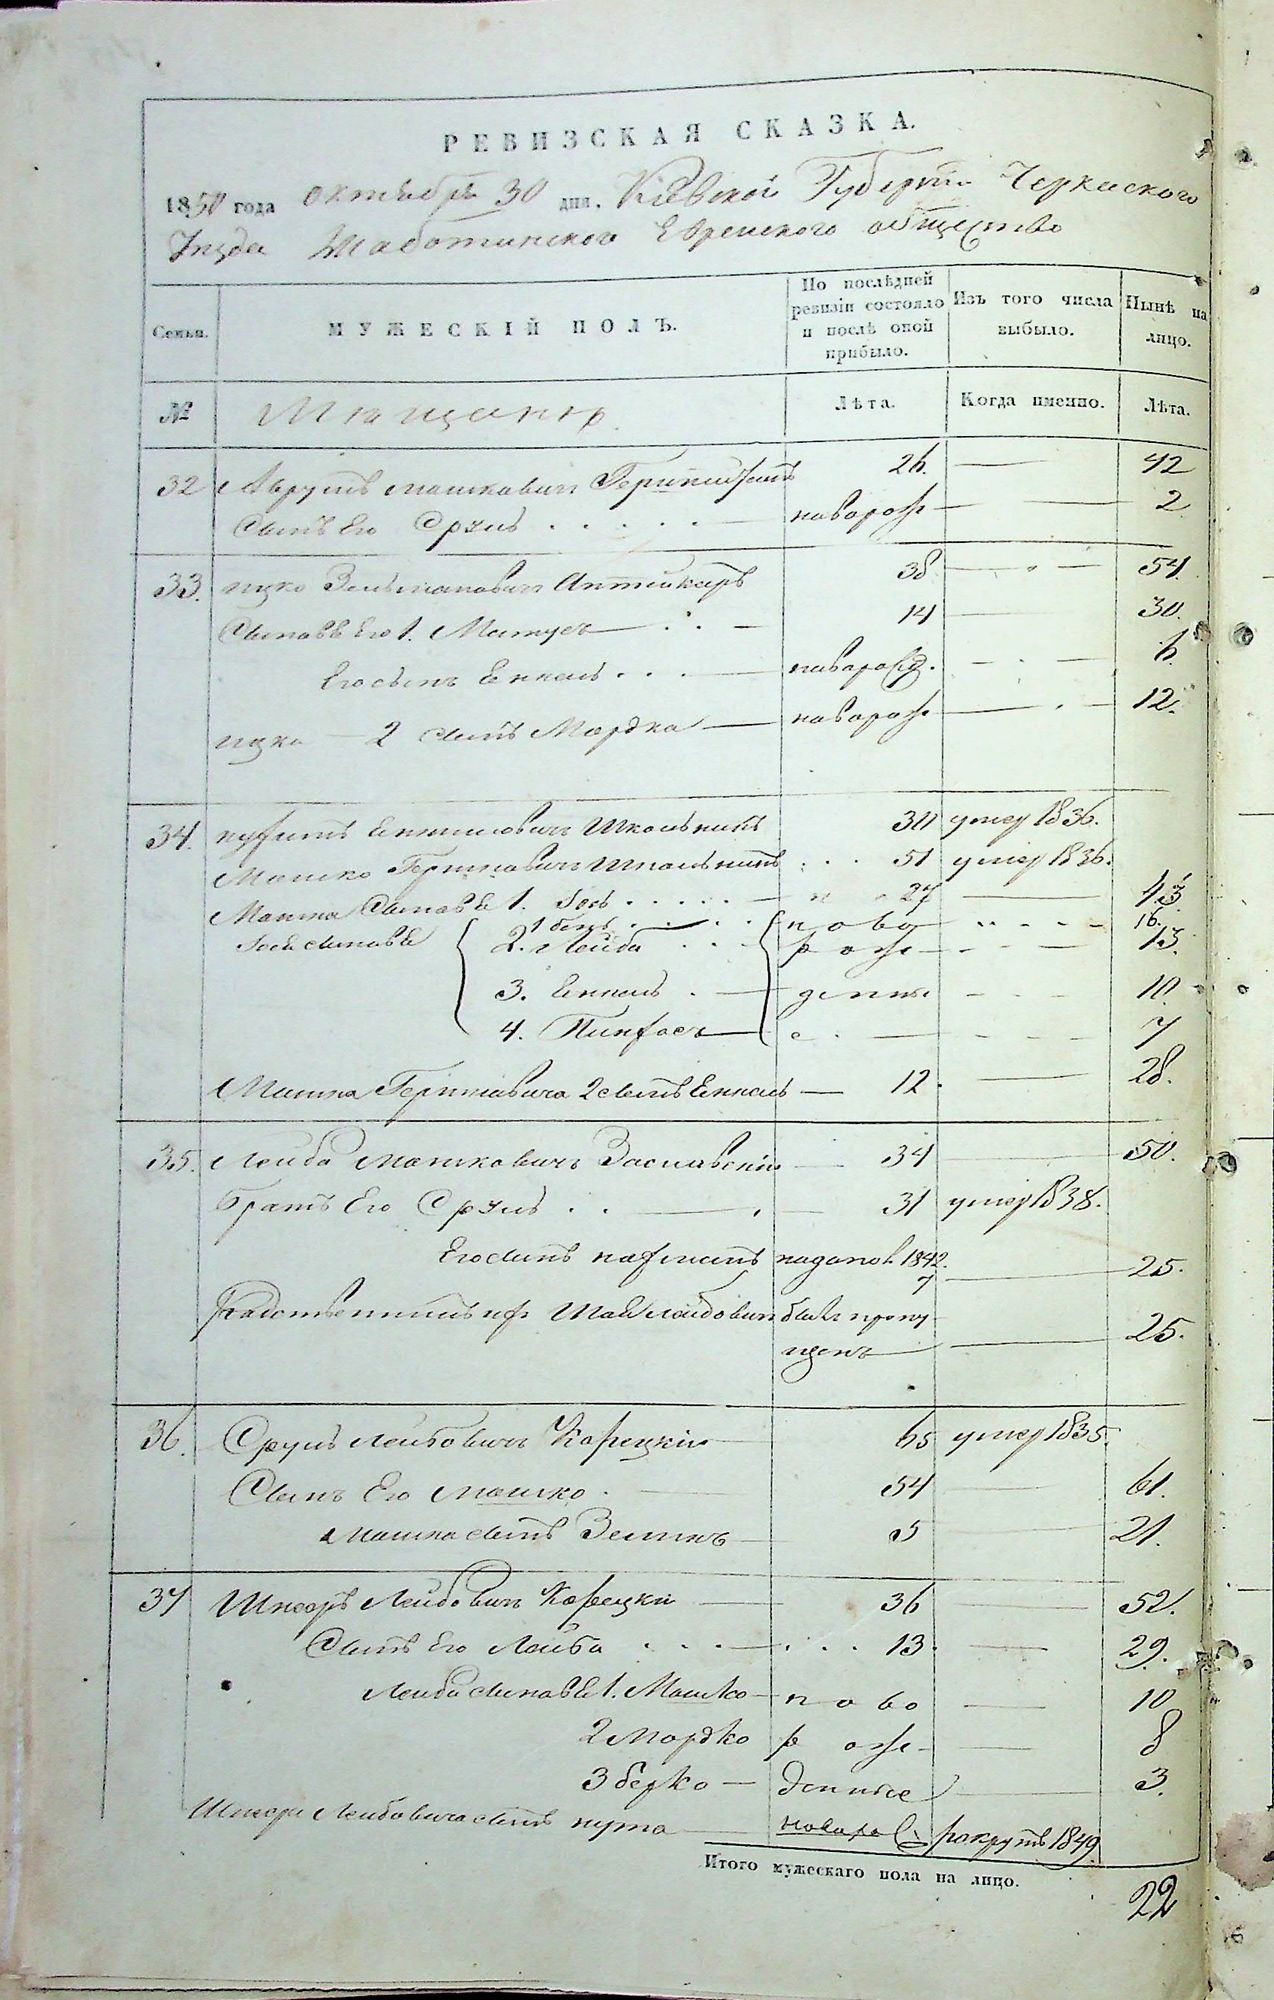 РЕВИЗСКАЯ СКАЗКА.
1850 года октября 30 дня. Киевской Губернии Черкаского
Уезда Жаботинского Еврейского общество
Семьи. МУЖЕСКІЙ ПОЛЪ. По послѣдней ревизіи состояло и послѣ оной прибыло. Изъ того числа выбыло. Нынѣ на лицо.
№ Мещане Лѣта. Когда именно. Лѣта.
32 Аврумъ Машкавичъ 26. — 42
Сынъ Его Сруль . . . . . — наворож — — 2
33. ицко Зельманович Аптикаръ 38 — 54.
Сыновъ Его 1. Матусъ — 14 — 30.
Его сынъ Енкель . . . — наворожд. — 6.
ицка 2 сынъ Мордка — наворож — 12.
34. Школьникъ 30 умер 1836.
Мошко Гершковичъ Школьникъ . . . 51 умер 1836.
Мошка Сыновье 1. . . . . . — 27 — 43.
1 бень . — . — . ново . . — 16.
сыновье 2. Лейба . . . рож — 13.
3. Енкель . — денные — 10.
4. Пинхосъ — — 7
Мошка Гершковича 2 сынъ Енкель — 12. — 28.
35. Лейба Мошкович Заславский — 34 — 50.
братъ Его Сруль . . — 31 умер 1838.
Его сынъ 1842. 7 — 25.
Лейбович былъ пропу
щенъ — 25.
36. Сруль Лейбовичъ Карецкій 65 умер 1835.
Сынъ Его Мошко . — 54 — 61.
Мошка сынъ — 5 21.
37 Лейбовичъ Карецкий — 36 — 52.
Сынъ Его Лейба . . . — . . . 13. — 29.
Лейба сыновье 1. Мошко — ново — 10
2 Мордко рож — — 8
3 берко — денные — 3.
Лейбовича сынъ нута — новоро рекрутъ 1849.
Итого мужескаго пола на лицо. 22